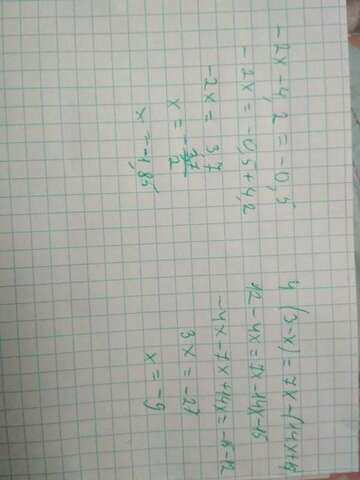 -2x-4,2=-0,5
-2x=-0,5+4,2
-2x=3,7
x=-3,7/2
x=-1,85
4(3-x)=7x-(14x+15)
12-4x=7x-14x-15
-4x-7x+14x=-15-12
3x=-27
x=-9